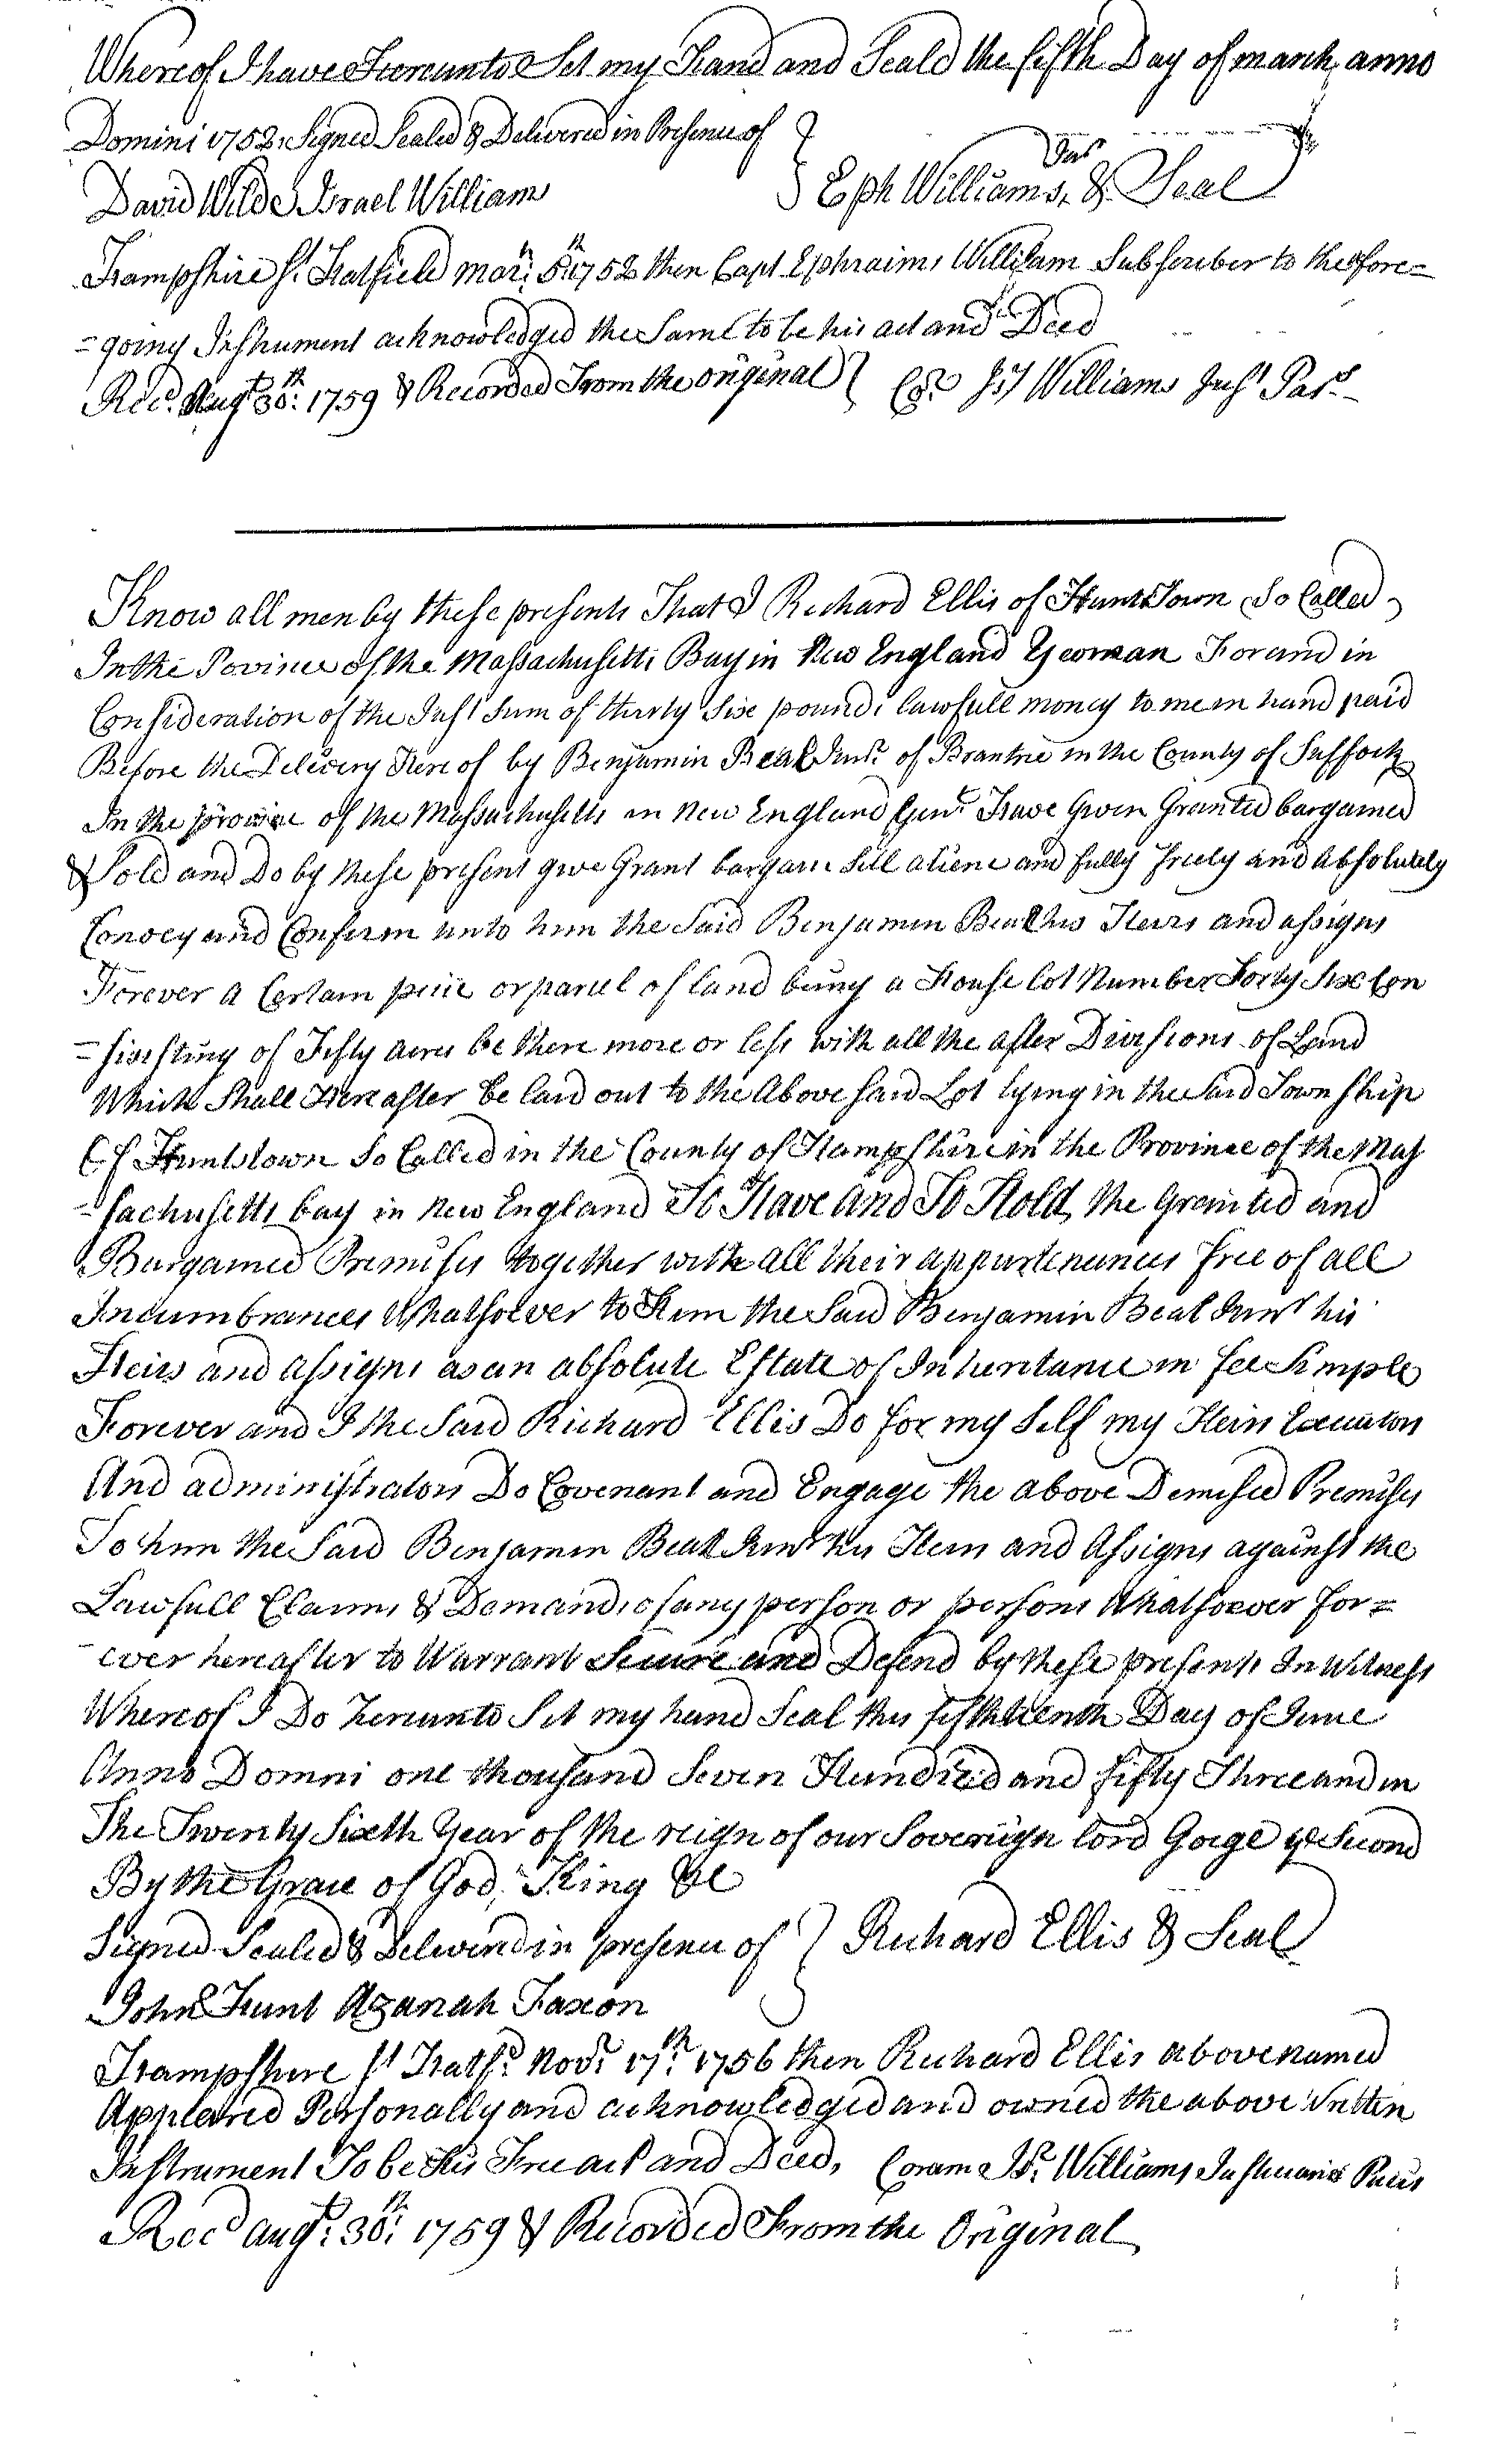 Whereof I have Hereunto Set my Hand and Seald the fifth Day of march, anno
Domini 1752, Signed Sealed & Delivered in Presence of
David Wilde Israel William
Eph Williams, Jur & Seal
Hampshire Ss Hatfield mar: 5th 1752 then Capt Ephraim William Subscriber to the fore=
=going Instrument acknowledged the Same to be his act and Deed
Recd. Augt 30th: 1759 & Recorded From the original
Cor. Isr Williams Just Pacs
Know all men by these presents That I Richard Ellis of HuntsTown So Called
In the Povince of the Massachusetts Bay in New England Yeoman For and in
Consideration of the Just Sum of thirty Six pounds lawfull money to me in hand paid
Before the Delivery Hereof by Benjamin Beal Junr. of Brantrie in the County of Suffock
In the province of the Massachusetts in New England Gent Have Given Granted bargained
& Sold and Do by these present give Grant bargain Sell aliene and fully freely and absolutely
Convey and Confirm unto him the Said Benjamin Beal his Heirs and assigns
Forever a Certain piece or parcel of land being a House lot Number Forty Six Con
=sisting of Fifty acres be there more or less with all the after Divisions of Land
Which Shall Hereafter be laid out to the Above said Lot lying in the Said Township
Of Huntstown So Called in the County of Hampshire in the Province of the Mas
=sachusetts bay in New England To Have and To Hold, the Granted and
Bargained Premises together with all their appurtenances free of all
Incumbrances Whatsoever to Him the Said Benjamin Beal Junr his
Heirs and assigns as an absolute Estate of Inheritance in fee Simple
Forever and I the Said Richard Ellis Do for my Self my Heirs Executors
And administrators Do Covenant and Engage the above Demised Premises
To him the Said Benjamin Beal Junr his Heirs and Assigns against the
Lawfull Claims & Demands of any person or persons Whatsoever for=
ever hereafter to Warrant Secure and Defend by these presents In Witness
Whereof I Do hereunto Set my hand Seal this fifthteenth Day of June
Anno Domni one thousand Seven Hundred and fifty Three and in
The Twenty Sixth Year of the reign of our Soveraign lord Gorge ye Second
By the Grace of God, King &c
Signed Sealed & Delivered in presence of
Richard Ellis & Seal
John Hunt Azariah Faxon
Hampshire Ss Hatfd. Novr 17th: 1756 then Richard Ellis above named
Appleared Personally and acknowledged and owned the above Written
Instrument To be His Free act and Deed, Coram Isr. Williams Justiciarius Pacis
Recd augt. 30th: 1759 & Recorded From the Original